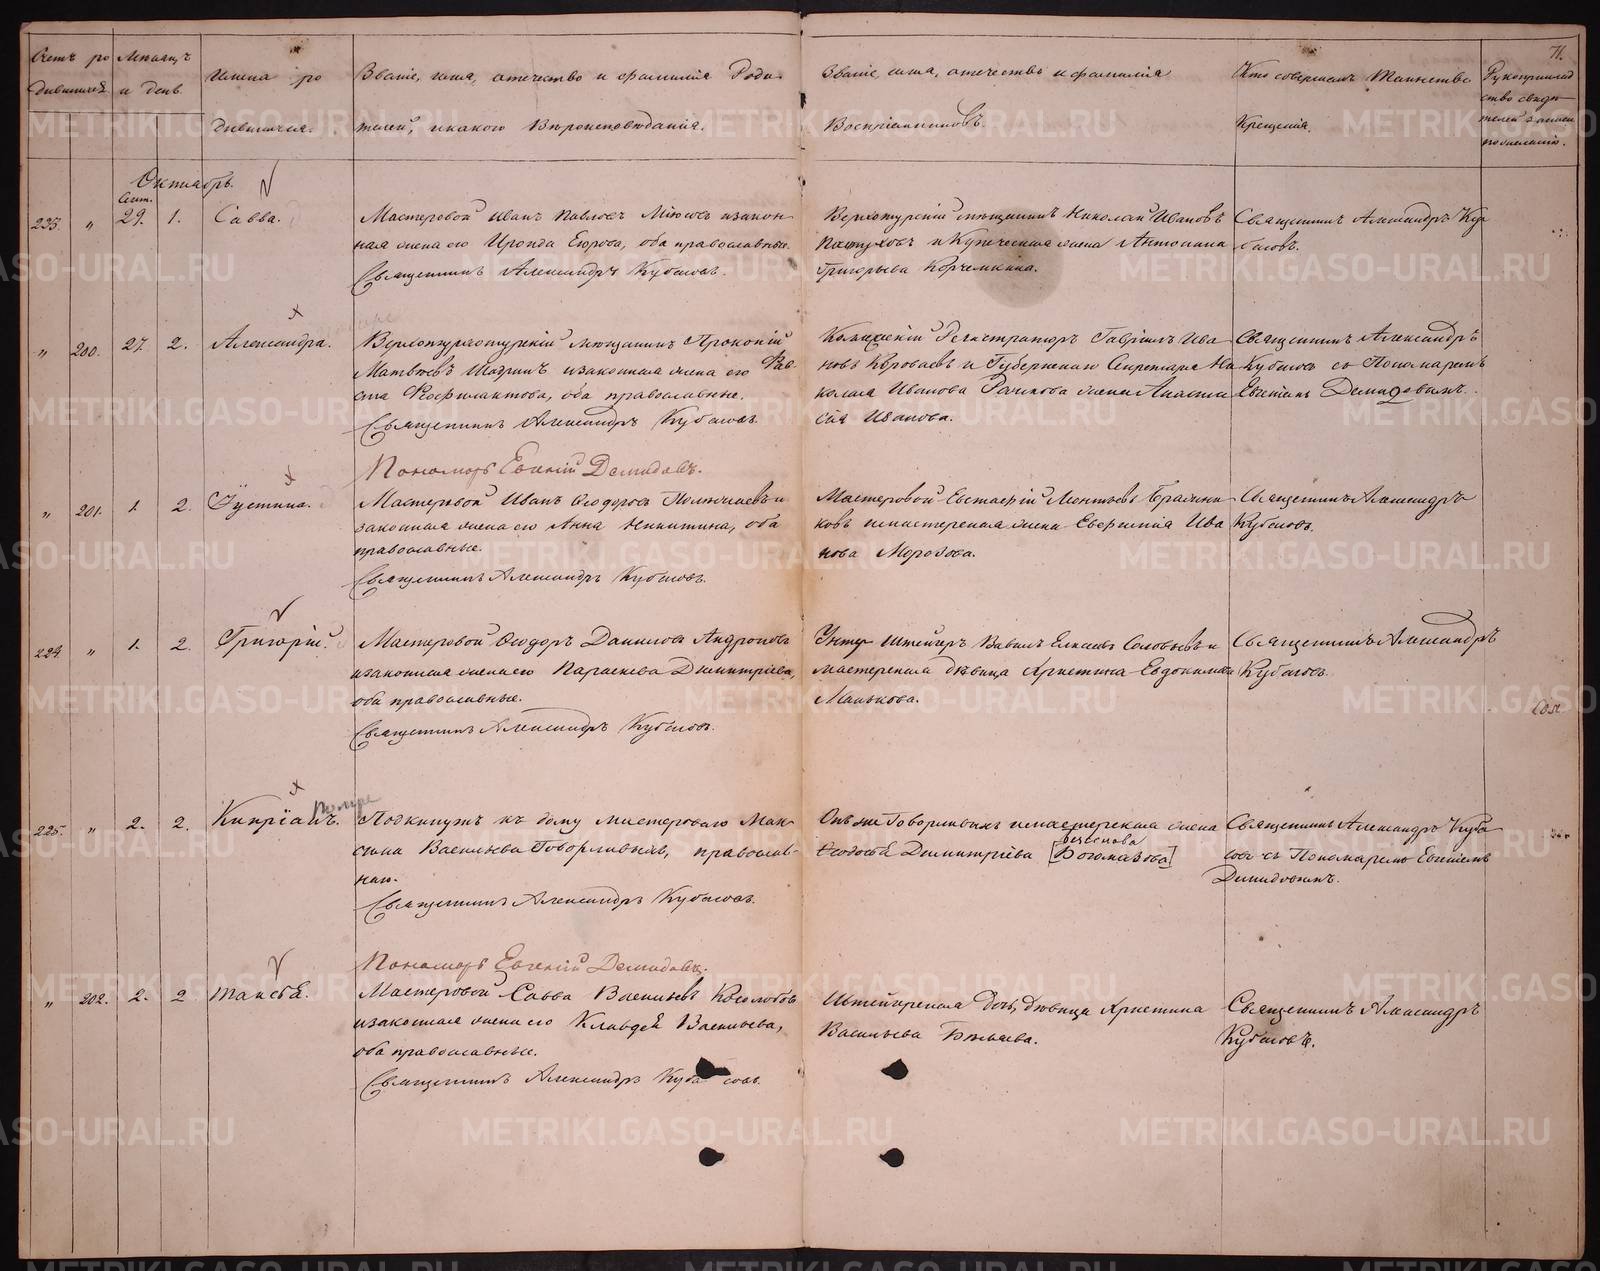 71.
Счетъ ро
дившихся
Мѣсяцъ
и день
Имена ро
дившихся.
Званіе, имя, отечество и фамилія Роди-
телей, и какого Вѣроисповѣданія.
Званіе, имя, отечество и фамилія
Воспріемниковъ.
Кто совершалъ Таинство
Крещенія.
Рукоприклад
ство свиде
телей о записи
по желанію.
Октябрь.
Сент.
223. " 29. 1. Савва.
Мастеровой Иванъ Павловъ и закон-
ная жена его Ироида Егорова, оба православные.
Священникъ Александръ Кубасовъ.
Верхотурскій мѣщанинъ Николай Ивановъ
Пастуховъ и Купеческая жена Антонина
Григорьева Корчемкина.
Священникъ Александръ Куб
басовъ.
" 200. 27. 2. Александра.
мѣщанинъ Прокопій
Матвѣевъ и законная жена его
Феофилактова, оба православные.
Священникъ Александръ Кубасовъ.
Пономарь Евгеній Демидовъ.
Регистраторъ Гавріилъ Ива
новъ Коробаевъ и Губернскаго Секретаря Ни
колая Иванова жена Анаста
сія Иванова.
Священникъ Александръ
Кубасовъ съ Пономаремъ
Евгеніемъ Демидовымъ.
" 201. 1. 2. Іустина.
Мастеровой Иванъ Ѳеодоровъ и
законная жена его Анна Никитина, оба
православные.
Священникъ Александръ Кубасовъ.
Мастеровой Евстафій Леонтьевъ
ковъ и мастерская жена Евфимія Ива
нова Морозова.
Священникъ Александръ
Кубасовъ.
224. " 1. 2. Григорій.
Мастеровой Ѳеодоръ Даниловъ Андроновъ
и законная жена его Параскева Димитріева,
оба православные.
Священникъ Александръ Кубасовъ.
Унтер Штейгеръ Вавилъ Елисеевъ Соловьевъ и
мастерская дѣвица Христина Евдокимова
Манькова.
Священникъ Александръ
Кубасовъ.
225. " 2. 2. Кипріанъ.
Подкинутъ къ дому мастероваго Мак-
сима Васильева Говорливыхъ, православ-
ной.
Священникъ Александръ Кубасовъ.
Пономарь Евгеній Демидовъ.
Онъ же Говорливыхъ и мастерская жена
Ѳеодосья Димитріева [Богомазова]
Священникъ Александръ Куба
совъ съ Пономаремъ Евгеніемъ
Демидовымъ.
" 202. 2. 2 Таисія.
Мастеровой Савва Васильевъ Косолобовъ
и законная жена его Клавдія Васильева,
оба православные.
Священникъ Александръ Кубасовъ.
Штейгерская дочь, дѣвица Христина
Васильева Бѣляева.
Священникъ Александръ
Кубасовъ.
METRIKI.GASO-URAL.RU